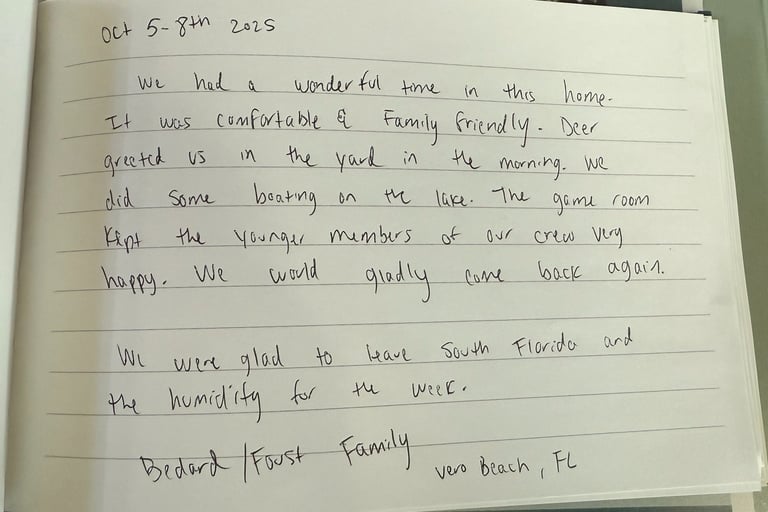 Oct 5-8th 2025
We had a wonderful time in this home.
It was comfortable & Family friendly. Deer
greeted us in the yard in the morning. We
did some boating on the lake. The game room
kept the younger members of our crew very
happy. We would gladly come back again.
We were glad to leave South Florida and
the humidity for the week.
Bedard / Foust Family
Vero Beach, FL